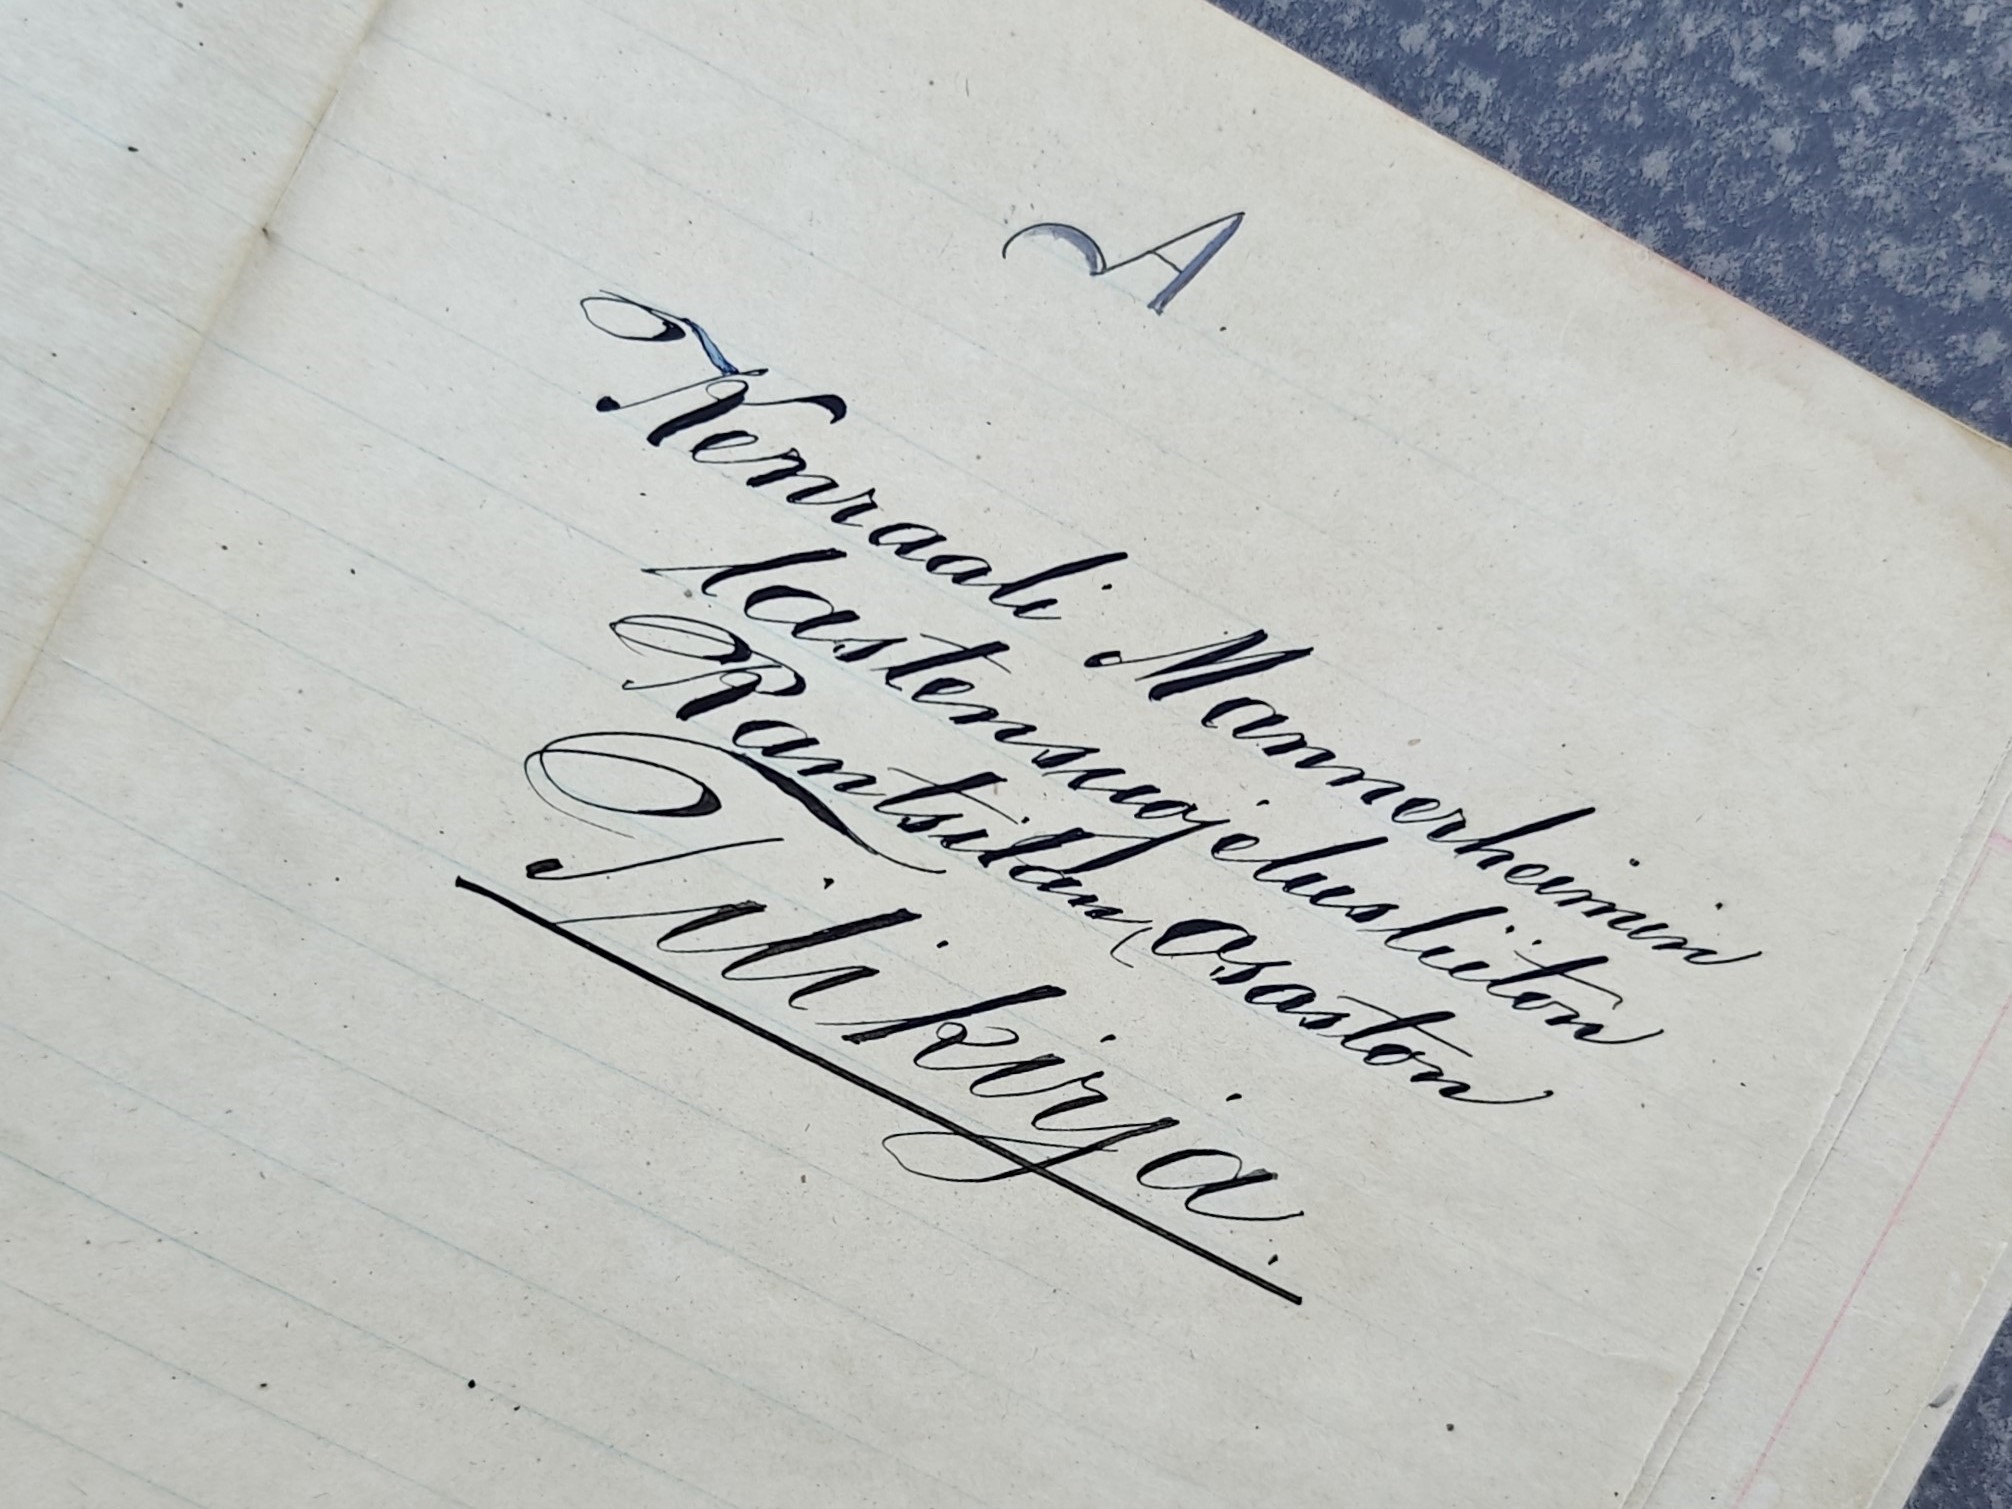 A
Kenraali Mannerheimin
lastensuojelusliiton
Rantsilan osaston
Tilikirja.